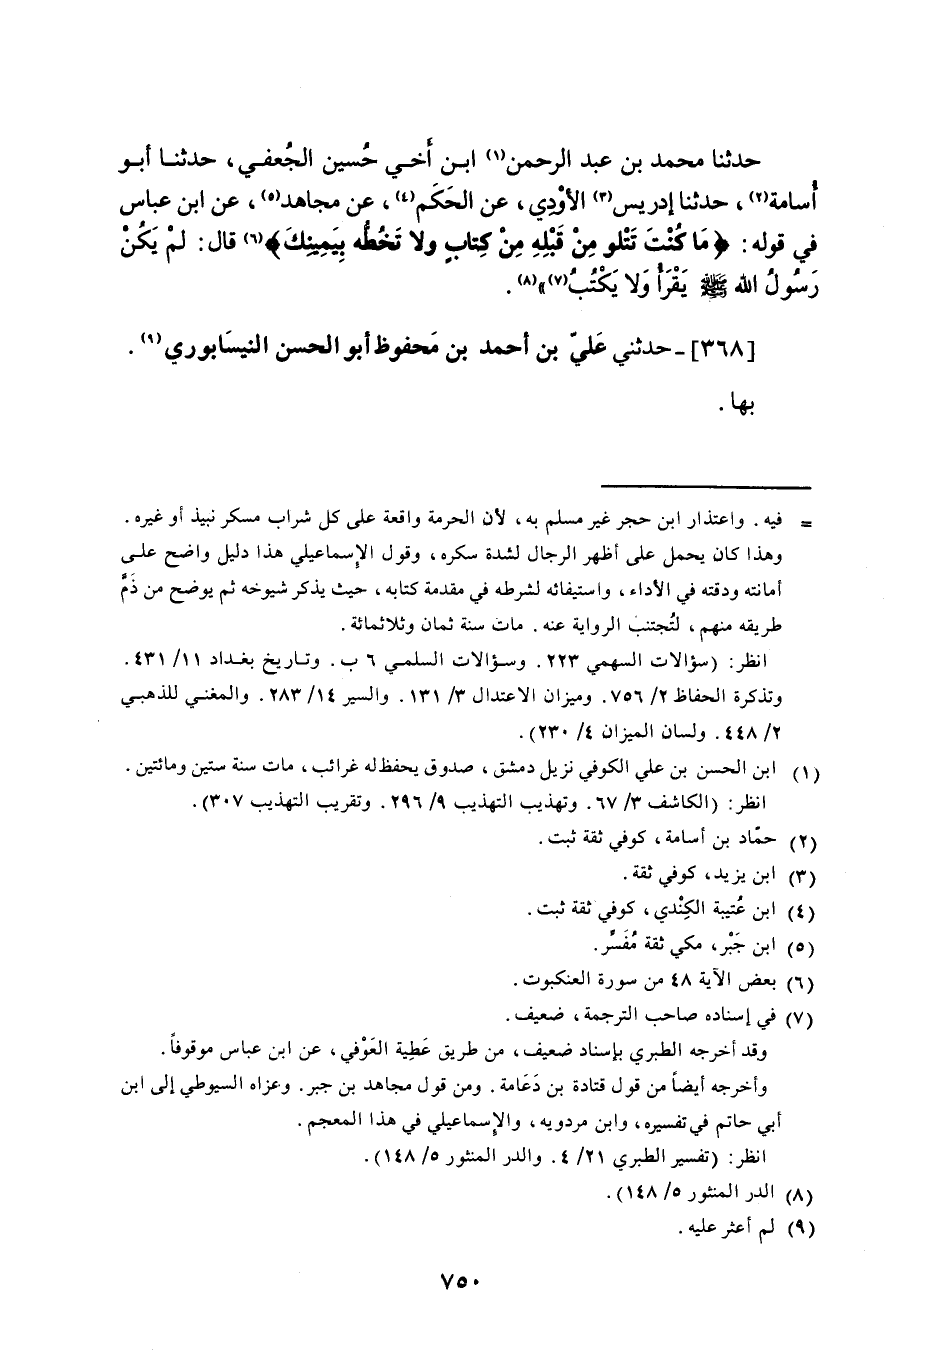 حدثنا محمد بن عبد الرحمن(١) ابن أَخي حُسين الجُعفي، حدثنا أبو
أُسامة(٢)، حدثنا إدريس(٣) الأوْدِي، عن الحَكَم(٤)، عن مجاهد(٥)، عن ابن عباس
في قوله: ﴿مَا كُنْتَ تَتْلو مِنْ قَبْلِهِ مِنْ كِتابٍ ولا تَخُطُّه بِيَمِينِكَ﴾(٦) قال: لمْ يَكُنْ
رَسُولُ الله ﷺ يَقْرَأُ وَلا يَكْتُبُ(٧)»(٨).
[٣٦٨] ـ حدثني عَليّ بن أحمد بن مَحفوظ أبو الحسن النيسَابوري(٩).
بها.
= فيه. واعتذار ابن حجر غير مسلم به، لأن الحرمة واقعة على كل شراب مسكر نبيذ أو غيره.
وهذا كان يحمل على أظهر الرجال لشدة سكره، وقول الإسماعيلي هذا دليل واضح على
أمانته ودقته في الأداء، واستيفائه لشرطه في مقدمة كتابه، حيث يذكر شيوخه ثم يوضح من ذَمَّ
طريقه منهم، لتُجتنب الرواية عنه. مات سنة ثمان وثلاثمائة.
انظر: (سؤالات السهمي ٢٢٣. وسؤالات السلمي ٦ ب. وتاريخ بغداد ١١/ ٤٣١.
وتذكرة الحفاظ ٢/ ٧٥٦. وميزان الاعتدال ٣/ ١٣١. والسير ١٤/ ٢٨٣. والمغني للذهبي
٢/ ٤٤٨. ولسان الميزان ٤/ ٢٣٠).
(١) ابن الحسن بن علي الكوفي نزيل دمشق، صدوق يحفظ له غرائب، مات سنة ستين ومائتين.
انظر: (الكاشف ٣/ ٦٧. وتهذيب التهذيب ٩/ ٢٩٦. وتقريب التهذيب ٣٠٧).
(٢) حمّاد بن أسامة، كوفي ثقة ثبت.
(٣) ابن يزيد، كوفي ثقة.
(٤) ابن عُتيبة الكِنْدي، كوفي ثقة ثبت.
(٥) ابن جَبْر، مكي ثقة مُفَسِّر.
(٦) بعض الآية ٤٨ من سورة العنكبوت.
(٧) في إسناده صاحب الترجمة، ضعيف.
وقد أخرجه الطبري بإسناد ضعيف، من طريق عَطِية العَوْفي، عن ابن عباس موقوفاً.
وأخرجه أيضاً من قول قتادة بن دَعَامة. ومن قول مجاهد بن جبر. وعزاه السيوطي إلى ابن
أبي حاتم في تفسيره، وابن مردويه، والإسماعيلي في هذا المعجم.
انظر: (تفسير الطبري ٢١/ ٤. والدر المنثور ٥/ ١٤٨).
(٨) الدر المنثور ٥/ ١٤٨).
(٩) لم أعثر عليه.
٧٥٠